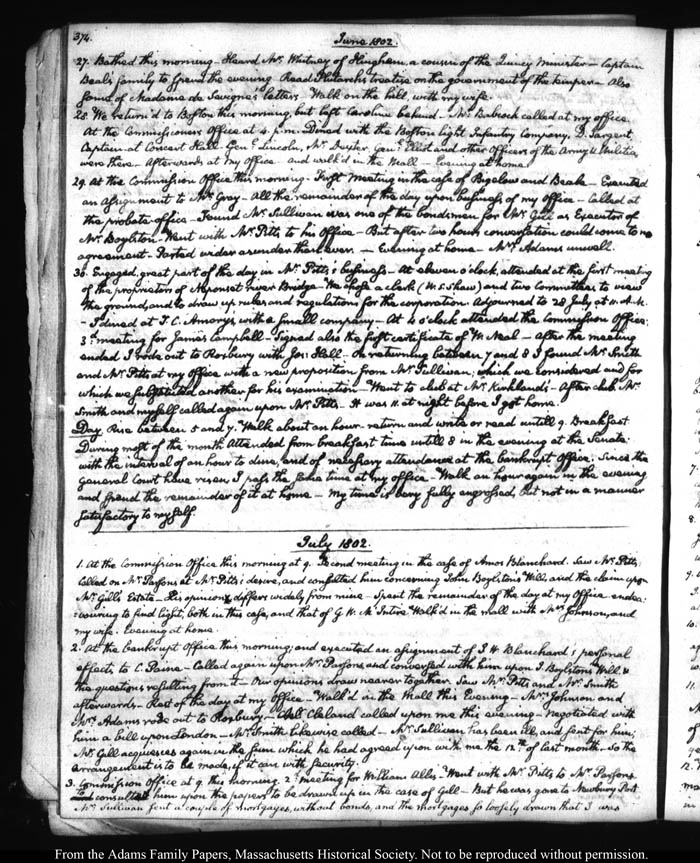 374.
June 1802.
27. Bathed this morning. Heard Mr. Whitney of Hingham, a cousin of the Quincy Minister — Captain
Beale's family to spend the evening. Read Plutarch's treatise on the government of the temper — Also
some of Madame de Sevigne's letters. Walk on the hill, with my wife.
28. We return'd to Boston this morning, but left Caroline behind — Mr. Babcock called at my office.
At the Commissioners Office at 4. p.m. Dined with the Boston light Infantry Company, D. Sargent
Captain at Concert Hall. Genl. Lincoln, Mr. Dexter, Genl. Elliot and other Officers of the Army & Militia,
were there. Afterwards at my Office and walk'd in the Mall — Evening at home.
29. At the Commission Office this morning — First meeting in the case of Bigelow and Beale — Executed
an assignment to Mr. Gray — All the remainder of the day upon business of my office — Called at
the probate office — Found Mr. Sullivan was one of the bondsmen for Mr. Gill as Executor of
Mr. Boylston — Went with Mr. Pitts to his Office — But after two hours conversation could come to no
agreement — Parted wider asunder than ever. — Evening at home — Mrs. Adams unwell.
30. Engaged, great part of the day in Mr. Pitts's business — At eleven o'clock, attended at the first meeting
of the proprietors of Neponset river Bridge — We chose a clerk (W. S. Shaw) and two Committees to view
the ground, and to draw up rules and regulations for the corporation. Adjourned to 28 July at 11. A.M.
— I dined at T. C. Amory's, with a small company — At 4 o'clock attended the Commission Office;
3d. meeting for James Campbell — Signed also the first certificate of Mc.Neal — After the meeting
ended I rode out to Roxbury with Jos: Hall — On returning between 7 and 8 I found Mr. Smith
and Mr. Pitts at my office with a new proposition from Mr. Sullivan; which we considered and for
which we substituted another for his examination — Went to club at Mr. Kirkland's — After club Mr.
Smith and myself called again upon Mr. Pitts. It was 11. at night before I got home.
Day. Rise between 5 and 7. Walk about an hour — return and write or read untill 9. Breakfast
During most of the month Attended from breakfast time untill 8 in the evening at the Senate:
with the interval of an hour to dine, and of necessary attendance at the bankrupt Office. Since the
General Court have risen, I pass the same time at my office — Walk an hour again in the evening
and spend the remainder of it at home — My time is very fully engrossed, but not in a manner
satisfactory to myself.
July 1802.
1. At the Commission Office this morning at 9. Second meeting in the case of Amos Blanchard. Saw Mr. Pitts.
Called on Mr. Parsons at Mr. Pitts's desire, and consulted him concerning John Boylston's Will, and the claim upon
Mr. Gill's Estate — His opinion differs widely from mine — Spent the remainder of the day at my Office — endea-
vouring to find light, both in this case, and that of G. K. Mc.Intire. Walk'd in the mall with Mrs. Johnson, and
my wife. Evening at home.
2. At the bankrupt Office this morning; and executed an assignment of J. H. Blanchard's personal
effects, to C. Paine — Called again upon Mr. Parsons, and conversed with him upon J. Boylston's Will, &
the questions resulting from it — Our opinions draw nearer together. Saw Mr. Pitts and Mr. Smith
afterwards — Rest of the day at my Office — Walk'd in the Mall this Evening — Mrs. Johnson and
Mrs. Adams rode out to Roxbury — Cleland called upon me this evening — negotiated with
him a bill upon London — Mr. Smith likewise called — Mr. Sullivan has been ill, and sent for him;
Mr. Gill acquiesces again in the sum which he had agreed upon with me the 12th. of last month. So the
arrangement is to be made, if it can with security.
3. Commission Office at 9. this morning. 2d. meeting for William Alls. Went with Mr. Pitts to Mr. Parsons
consult him upon the papers to be drawn up in the case of Gill — But he was gone to Newbury Port
Mr. Sullivan sent a couple of mortgages, without bonds, and the mortgages so loosely drawn that I was
From the Adams Family Papers, Massachusetts Historical Society. Not to be reproduced without permission.